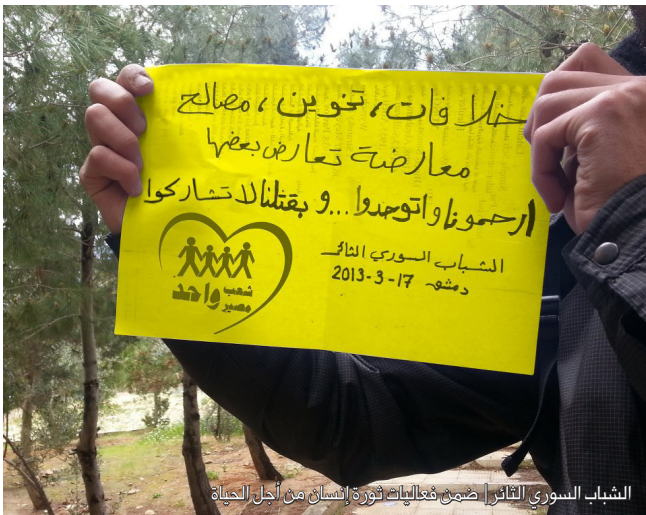 خلافات، تخوين، مصالح
معارضة تعارض بعضها
ارحمونا واتوحدوا...و بقتلنا لا تشاركوا
الشباب السوري الثائر
دمشق 17-3-2013
شعب واحد
مصير
الشباب السوري الثائر | ضمن فعاليات ثورة إنسان من أجل الحياة